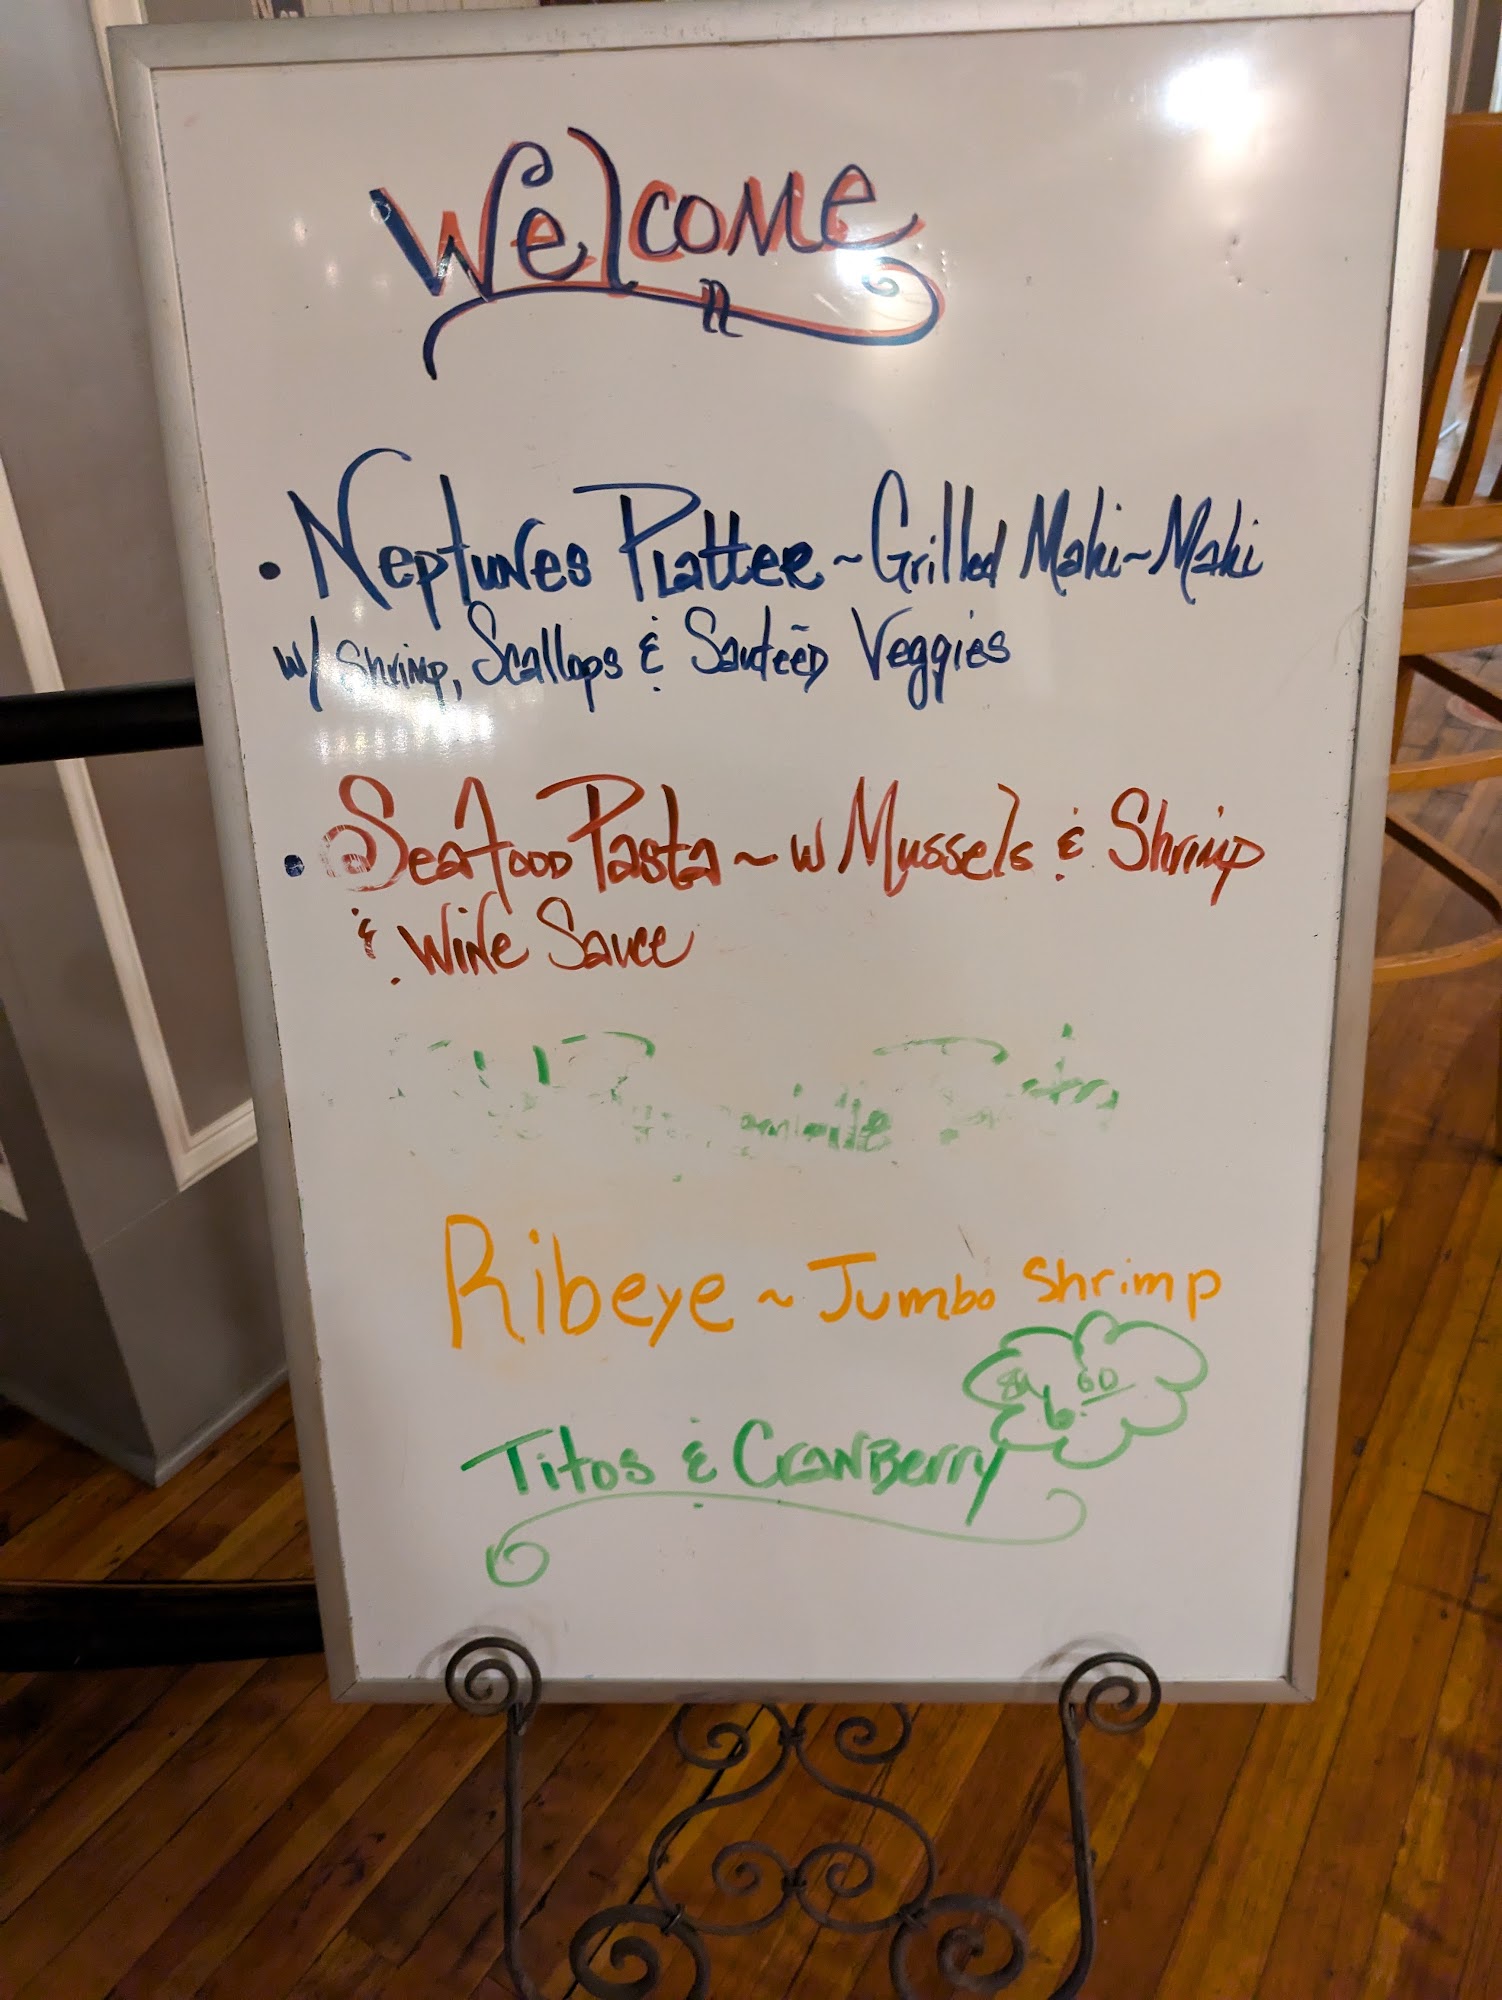 Welcome
• Neptunes Platter ~ Grilled Mahi~Mahi
w/ Shrimp, Scallops & Sauteed Veggies
• Seafood Pasta ~ w Mussels & Shrimp
& Wine Sauce
Ribeye ~ Jumbo Shrimp
Titos & Cranberry